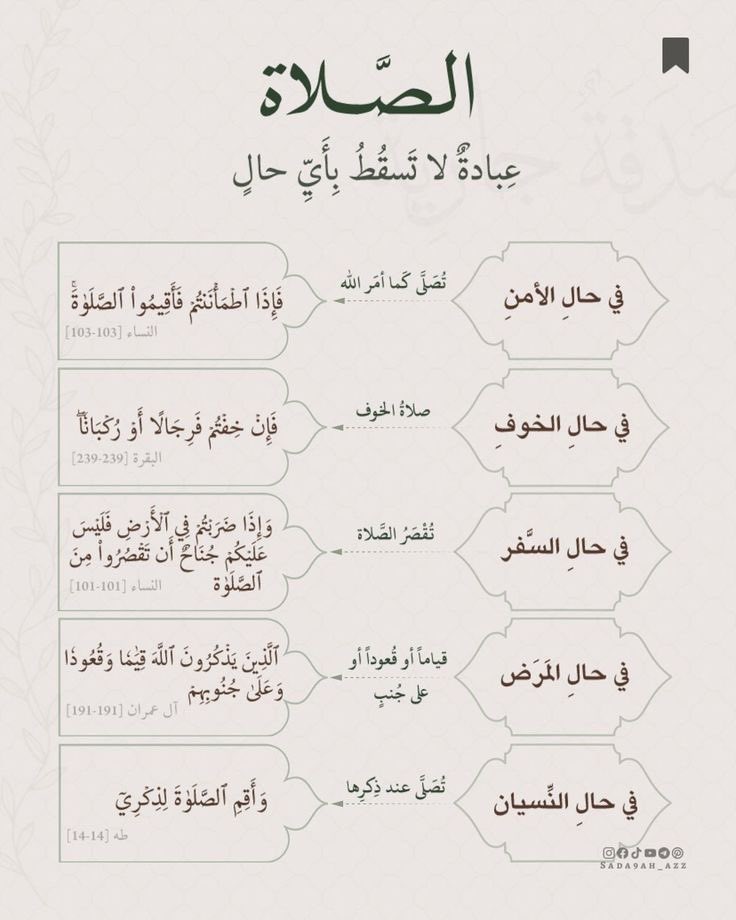 الصَّلاة
عِبادةٌ لا تَسقُطُ بِأَيِّ حالٍ
في حالِ الأمنِ
تُصَلَّى كَما أمَر الله
فَإِذَا ٱطْمَأْنَنتُمْ فَأَقِيمُوا۟ ٱلصَّلَوٰةَۚ
النساء [103-103]
في حالِ الخوفِ
صلاةُ الخوف
فَإِنْ خِفْتُمْ فَرِجَالًا أَوْ رُكْبَانًاۖ
البقرة [239-239]
في حالِ السَّفر
تُقْصَرُ الصَّلاة
وَإِذَا ضَرَبْتُمْ فِي ٱلْأَرْضِ فَلَيْسَ
عَلَيْكُمْ جُنَاحٌ أَن تَقْصُرُوا۟ مِنَ
ٱلصَّلَوٰة
النساء [101-101]
في حالِ المَرَض
قياماً أو قُعوداً أو
على جُنبٍ
ٱلَّذِينَ يَذْكُرُونَ ٱللَّهَ قِيَٰمًا وَقُعُودًا
وَعَلَىٰ جُنُوبِهِمْ
آل عمران [191-191]
في حالِ النِّسيان
تُصَلَّى عند ذِكرِها
وَأَقِمِ ٱلصَّلَوٰةَ لِذِكْرِيٓ
طه [14-14]
SADA9AH_AZZ
صَدَقَة جَارِية